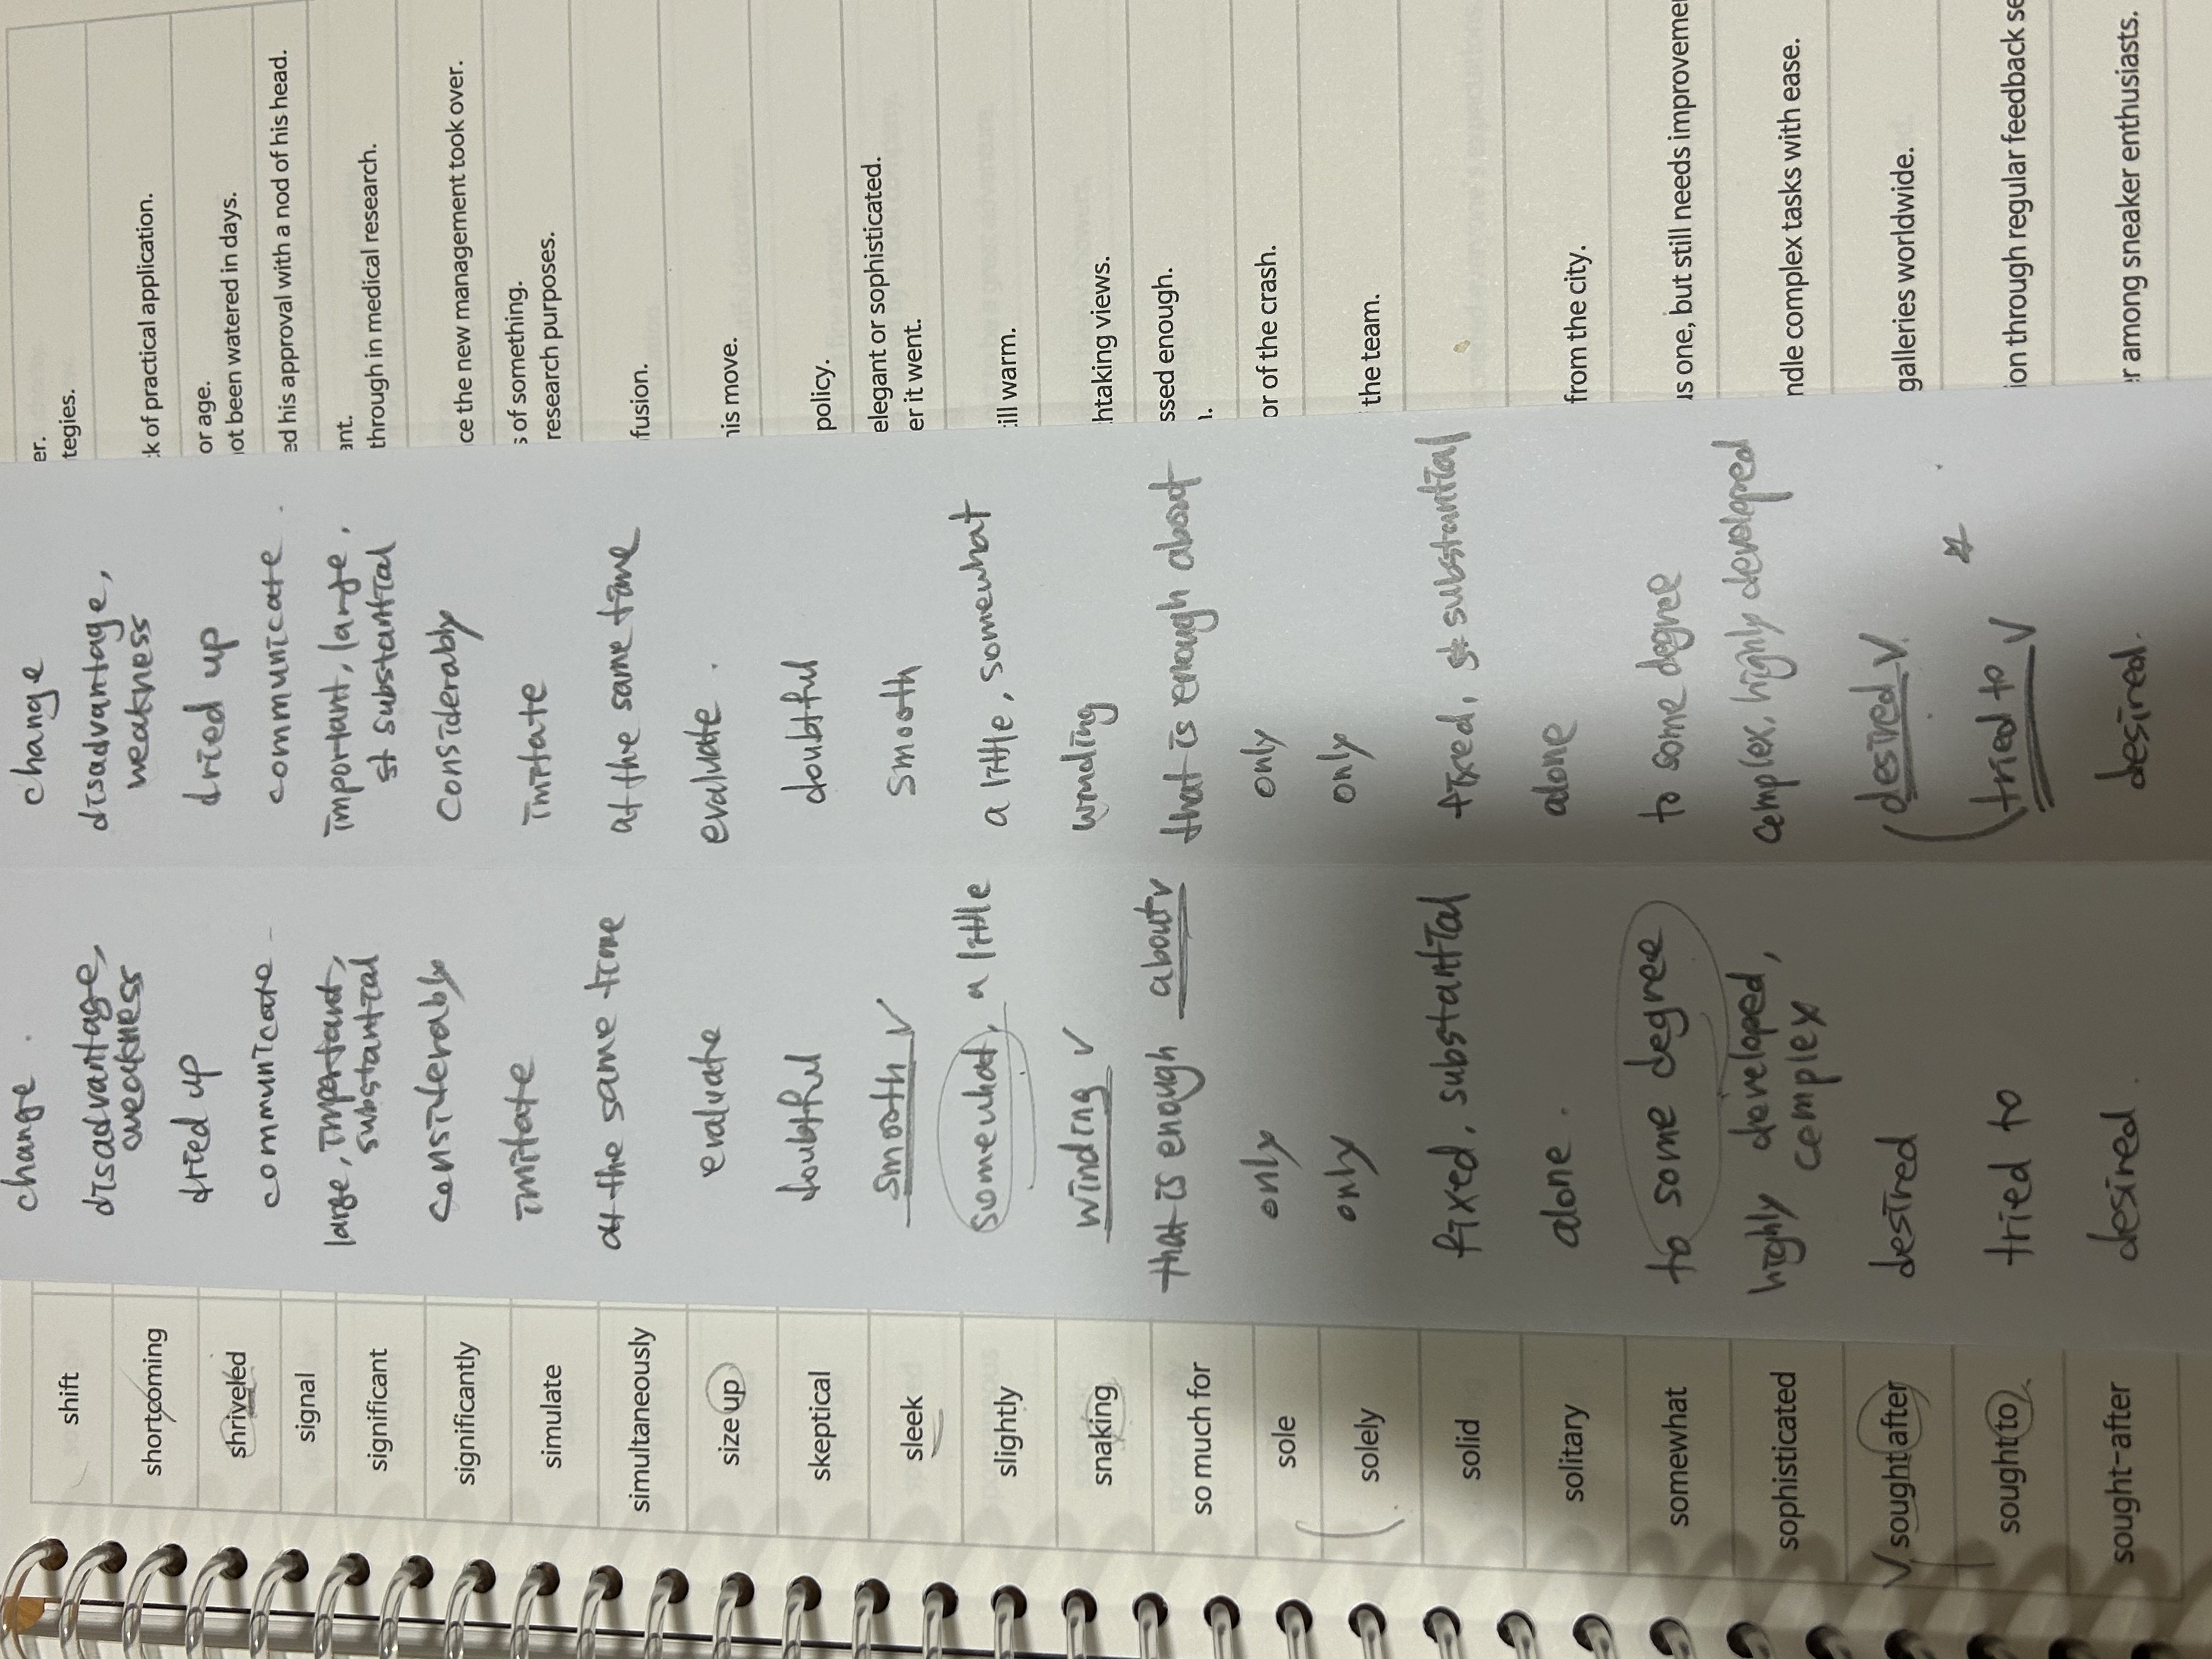 shift
change.
change
er.
tegies.
shortcoming
disadvantage,
weakness
disadvantage,
weakness
k of practical application.
shriveled
dried up
dried up
or age.
ot been watered in days.
signal
communicate
communicate.
ed his approval with a nod of his head.
significant
large, important,
substantial
important, large,
st substantial
ant.
through in medical research.
significantly
considerably
considerably
ce the new management took over.
simulate
imitate
imitate
s of something.
research purposes.
simultaneously
at the same time
at the same time
fusion.
size up
evaluate
evaluate.
his move.
skeptical
doubtful
doubtful
policy.
sleek
smooth
smooth
elegant or sophisticated.
er it went.
slightly
somewhat, a little
a little, somewhat
ill warm.
snaking
winding
winding
htaking views.
so much for
that is enough about
that is enough about
ssed enough.
sole
only
only
or of the crash.
solely
only
only
the team.
solid
fixed, substantial
fixed, st substantial
solitary
alone.
alone
from the city.
somewhat
to some degree
to some degree
us one, but still needs improvemen
sophisticated
highly developed,
complex
complex, highly developed
ndle complex tasks with ease.
sought after
desired
desired
galleries worldwide.
sought to
tried to
tried to
ion through regular feedback se
sought-after
desired.
desired.
r among sneaker enthusiasts.